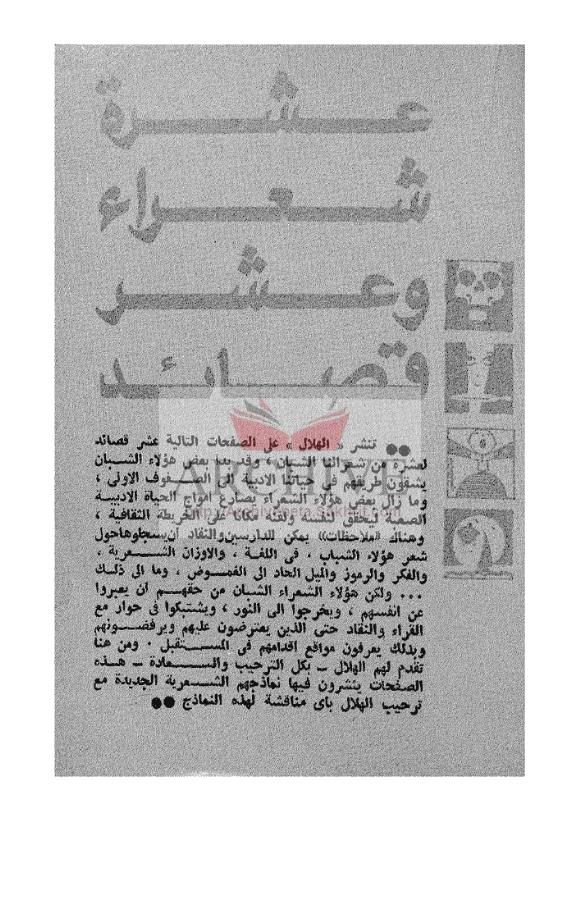 عشرة
شعراء
وعشر
قصائد
●● تنشر « الهلال » على الصفحات التالية عشر قصائد
لعشرة من شعرائنا الشبان ، وقد بدأ بعض هؤلاء الشبان
يشقون طريقهم فى حياتنا الادبية الى الصفوف الاولى ،
وما زال بعض هؤلاء الشعراء يصارع امواج الحياة الادبية
الصعبة ليحقق لنفسه ولفنه مكانا على الخريطة الثقافية ،
وهناك «ملاحظات» يمكن للدارسين والنقاد أن يسجلوها حول
شعر هؤلاء الشباب ، فى اللغة ، والاوزان الشعرية ،
والفكر والرموز والميل الحاد الى الغموض ، وما الى ذلك
... ولكن هؤلاء الشعراء الشبان من حقهم ان يعبروا
عن انفسهم ، ويخرجوا الى النور ، ويشتبكوا فى حوار مع
القراء والنقاد حتى الذين يعترضون عليهم ويرفضونهم
وبذلك يعرفون مواقع اقدامهم فى المستقبل . ومن هنا
تقدم لهم الهلال - بكل الترحيب والسعادة - هذه
الصفحات ينشرون فيها نماذجهم الشعرية الجديدة مع
ترحيب الهلال بأى مناقشة لهذه النماذج ●●
ARCHIVE